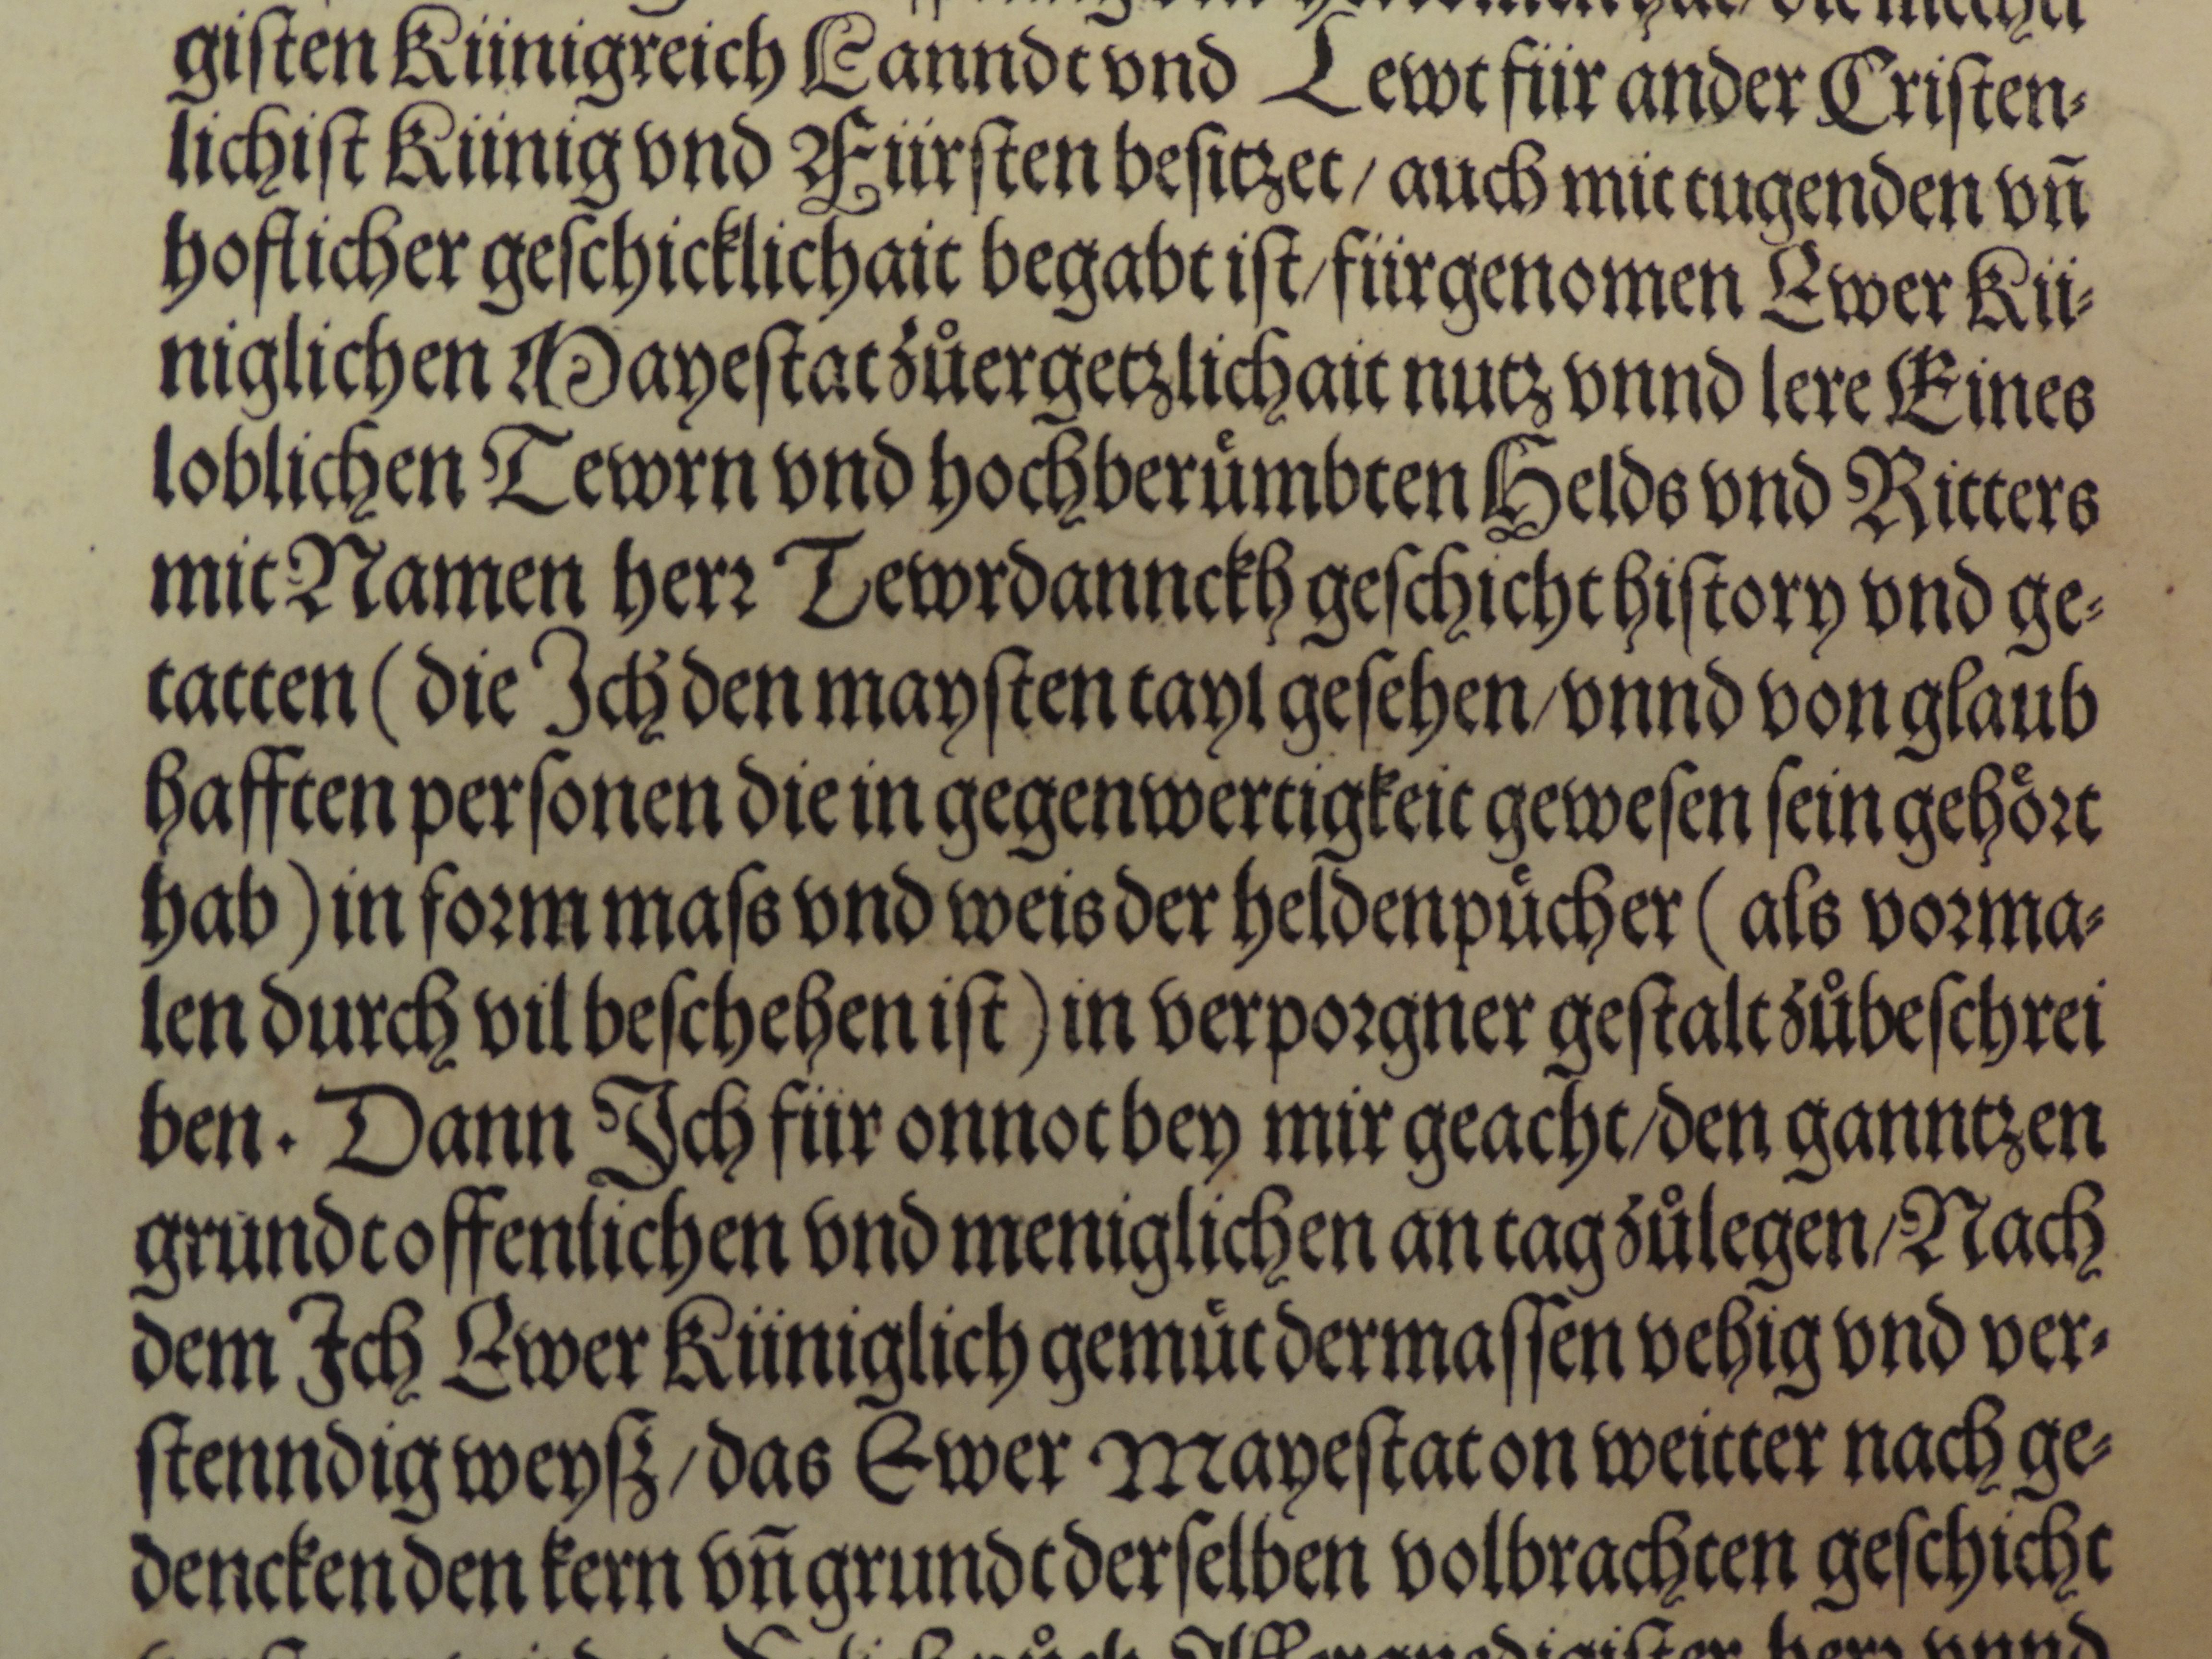 giſten Künigreich Lanndt vnd Lewt für ander Criſten⸗
lichiſt Künig vnd Fürſten beſitzet/ auch mit tugenden vn̄
hoflicher geſchicklichait begabt iſt/ fürgenomen Ewer Kü⸗
niglichen Mayeſtat zůergetzlichait nutz vnnd lere Eines
loblichen Tewrn vnd hochberuͤmbten Helds vnd Ritters
mit Namen herꝛ Tewrdannckh geſchicht hiſtory vnd ge⸗
tatten ( die Ich den mayſten tayl geſehen/ vnnd von glaub
hafften perſonen die in gegenwertigkeit geweſen ſein gehoͤꝛt
hab ) in foꝛm maſs vnd weis der heldenpuͤcher ( als voꝛma⸗
len durch vil beſchehen iſt ) in verpoꝛgner geſtalt zůbeſchrei
ben. Dann Ich für onnot bey mir geacht/ den ganntzen
grundt offenlichen vnd meniglichen an tag zůlegen/ Nach
dem Ich Ewer Küniglich gemuͤt dermaſſen vehig vnd ver⸗
ſtenndig weyſz/ das Ewer Mayeſtat on weitter nach ge⸗
dencken den kern vn̄ grundt derſelben volbrachten geſchicht